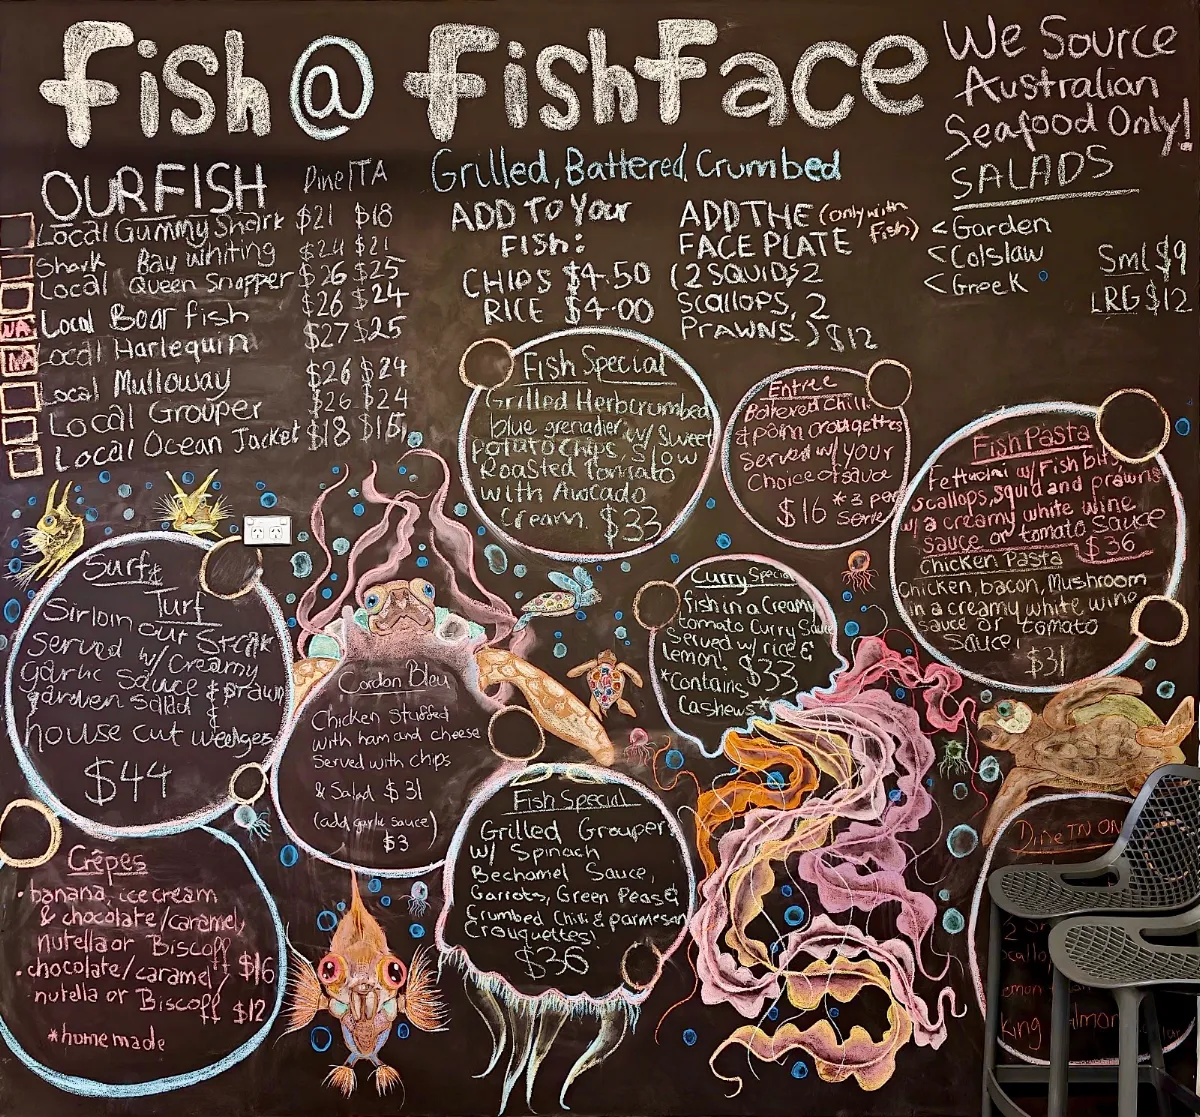 Fish @ FishFace
We Source
Australian
Seafood Only!
Grilled, Battered, Crumbed
OUR FISH Dine I TA
Local Gummy Shark $21 $18
Shark Bay Whiting $24 $21
Local Queen Snapper $26 $25
Local Boar fish $26 $24
NA Local Harlequin $27 $25
NA Local Mulloway $26 $24
Local Grouper $26 $24
Local Ocean Jacket $18 $15
ADD TO YOUR
FISH:
CHIPS $4.50
RICE $4.00
ADD THE (only with
FACE PLATE Fish)
(2 SQUIDS, 2
Scallops, 2
PRAWNS.) $12
SALADS
<Garden
<Colslaw
<Greek
Sml $9
LRG $12
Fish Special
Grilled Herbcrumbed
blue grenadier w/ Sweet
potato chips, Slow
Roasted Tomato
with Avocado
Cream. $33
Entree
Battered chilli
& parm crouqettes
Served w/ your
Choice of sauce
$16 *3 per
serve
Fish Pasta
Fettucini w/ Fish bits,
scallops, squid and prawns
w/ a creamy white wine
sauce or tomato sauce
$36
Chicken Pasta
Chicken, bacon, Mushroom
in a creamy white wine
sauce or tomato
Sauce.
$31
Surf &
Turf
Sirloin cut Steak
Served w/ Creamy
garlic Sauce & prawn
garden salad &
house cut wedges
$44
Cordon Bleu
Chicken Stuffed
with ham and cheese
Served with chips
& Salad $31
(add garlic sauce)
$3
Curry Special
fish in a Creamy
tomato Curry Sauce
Served w/ rice &
lemon. $33
*Contains
Cashews*
Fish Special
Grilled Grouper
w/ Spinach
Bechamel Sauce,
Carrots, Green Peas &
Crumbed Chili & parmesan
Crouquettes!
$36
Crêpes
• banana, icecream
& chocolate/caramel,
nutella or Biscoff $16
• chocolate/caramel,
nutella or Biscoff $12
*home made
Dine IN ON
2
King